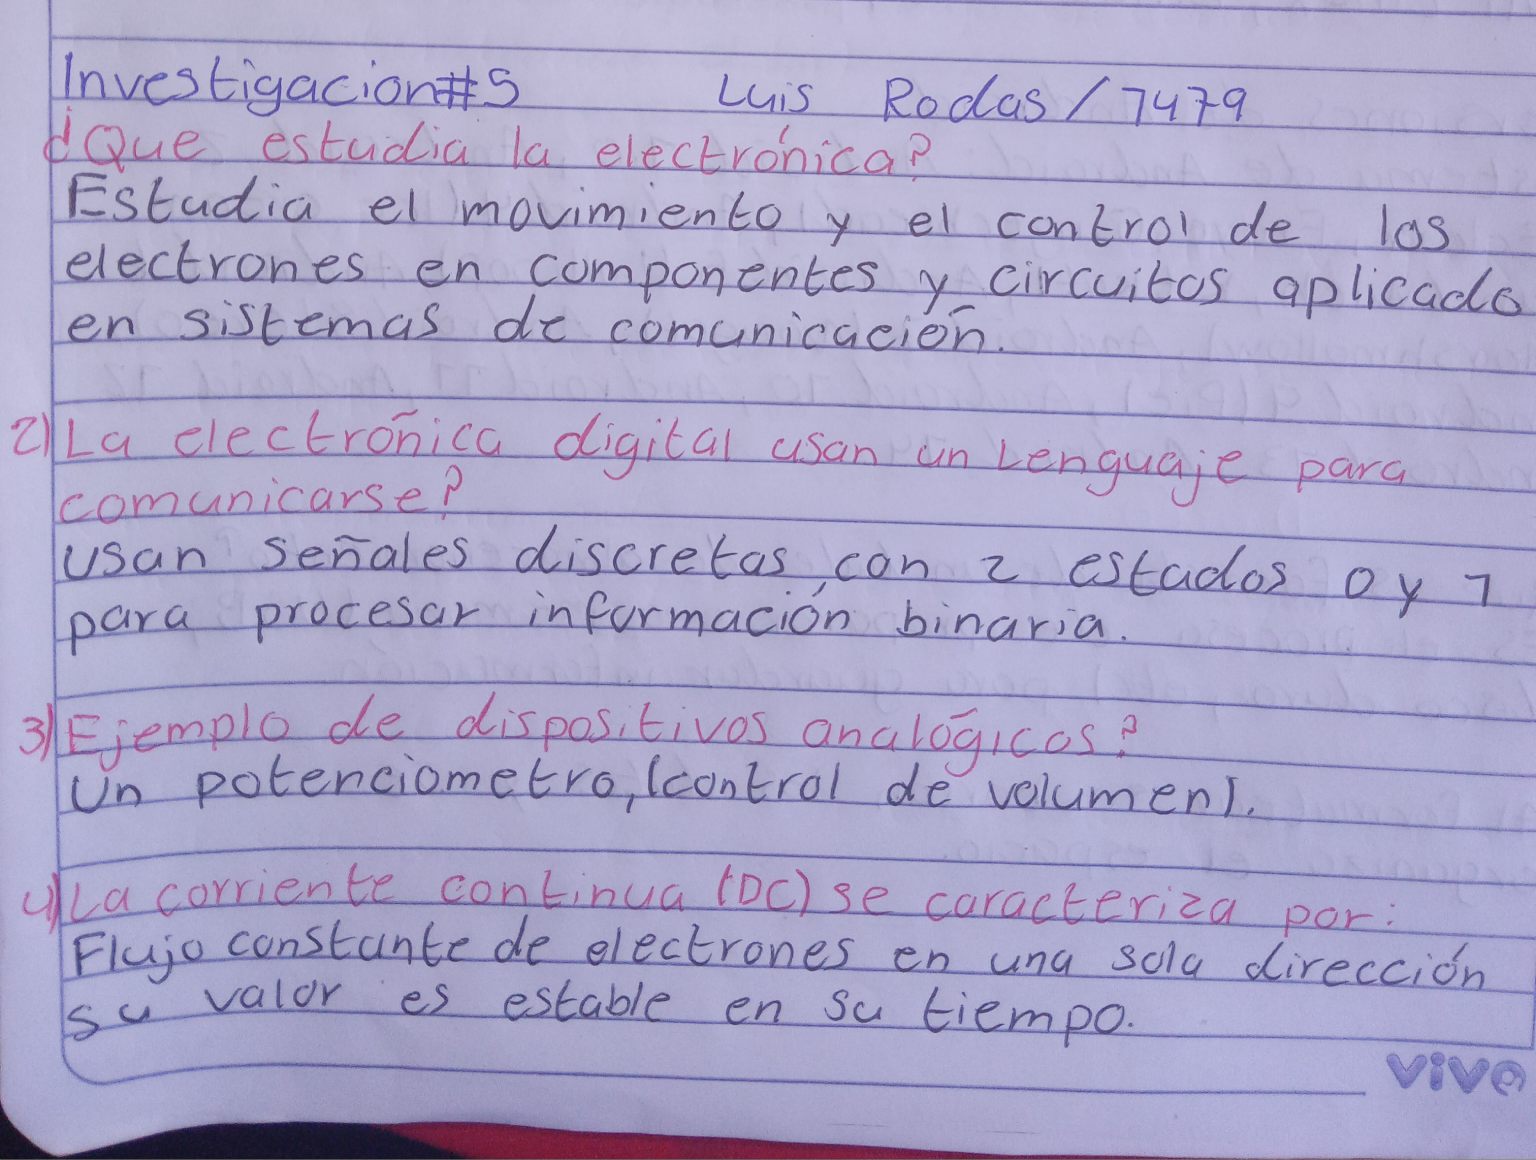 Investigacion#5 Luis Rodas/7479
¿Que estudia la electrónica?
Estudia el movimiento y el control de los
electrones en componentes y circuitos aplicado
en sistemas de comunicación.
2) La electrónica digital usan un Lenguaje para
comunicarse?
Usan señales discretas, con 2 estados 0 y 1
para procesar información binaria.
3) Ejemplo de dispositivos analógicos?
Un potenciometro, (control de volumen).
4) La corriente continua (DC) se caracteriza por:
Flujo constante de electrones en una sola dirección
su valor es estable en su tiempo.
vivo